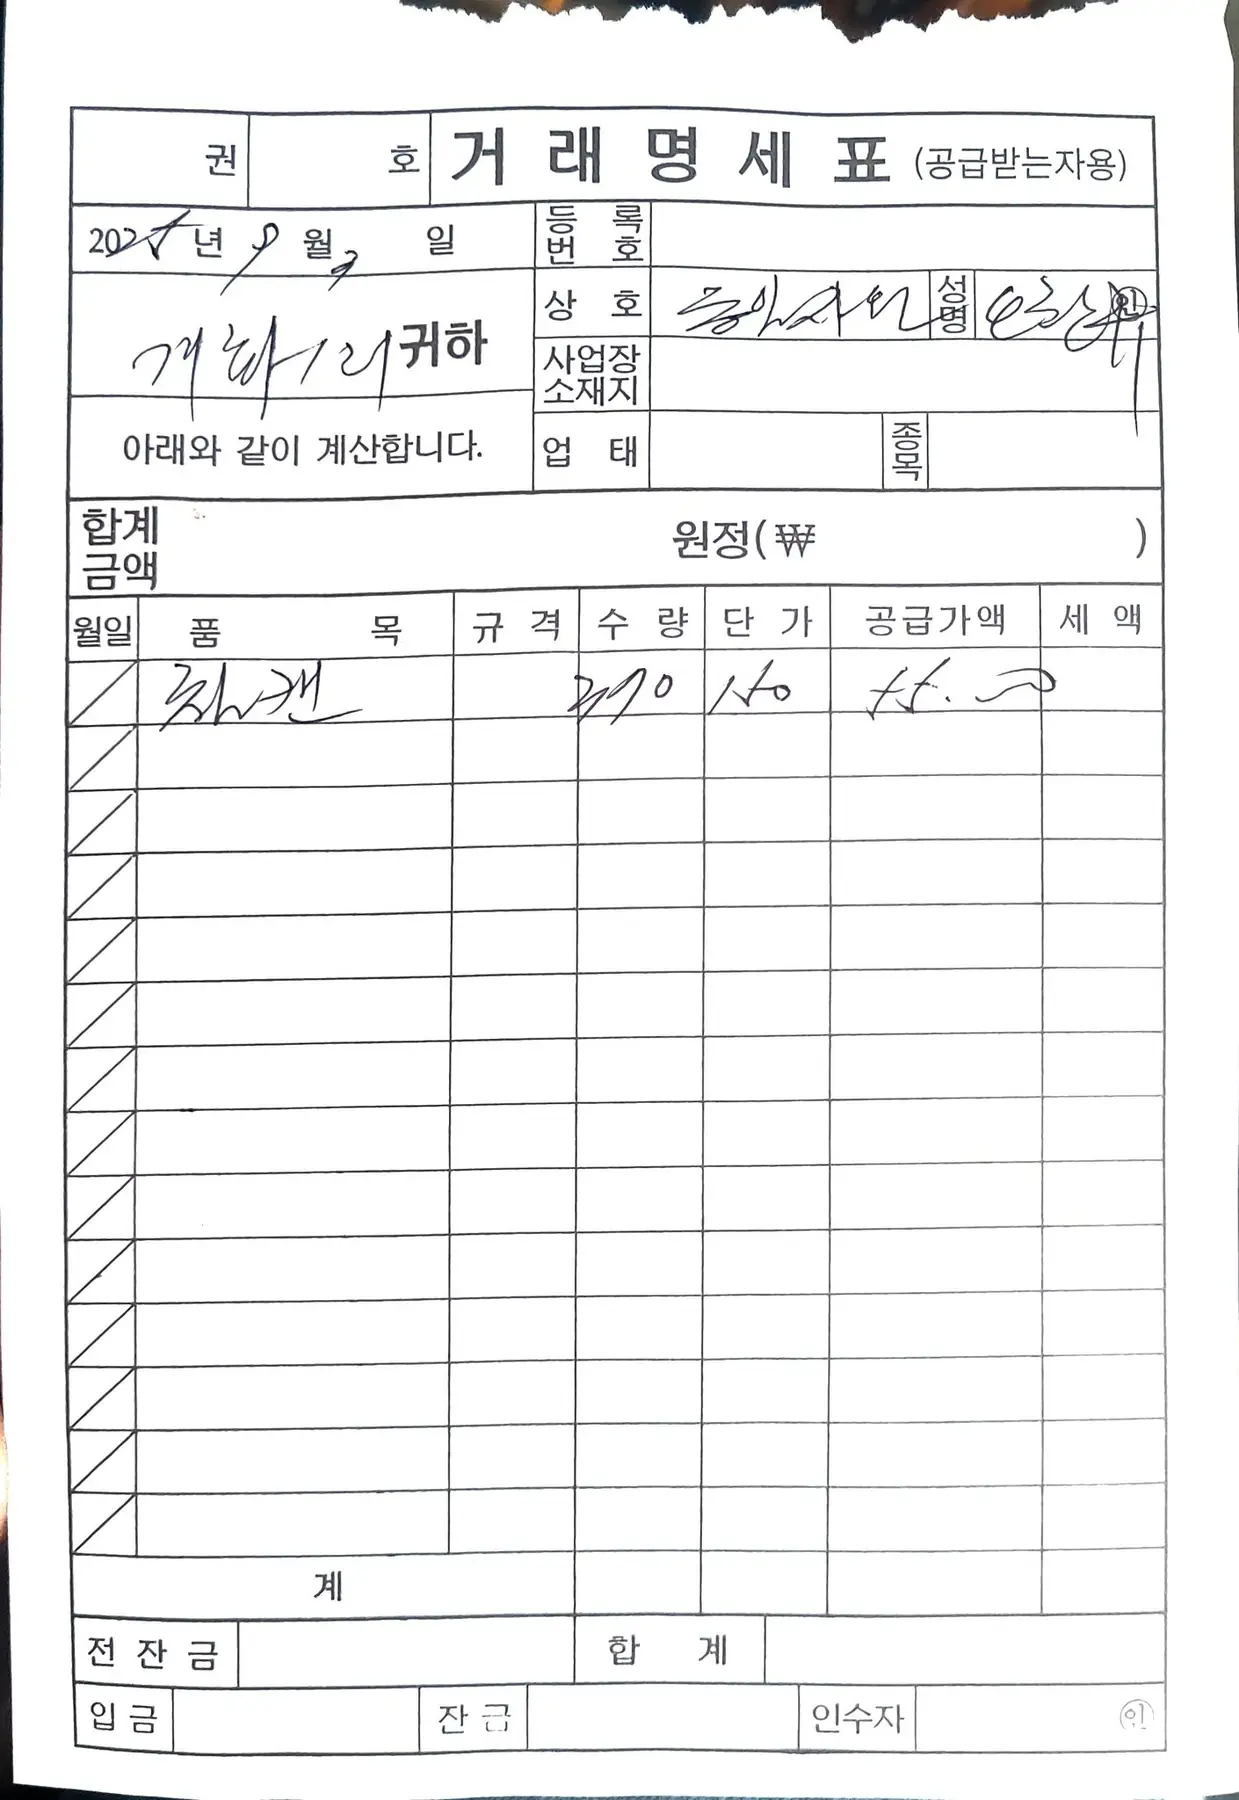 권 호 거래명세표 (공급받는자용)
2025년 9월 2일
등록번호
귀하
상호 성명 인
사업장소재지
아래와 같이 계산합니다.
업태 종목
합계금액 원정(₩ )
월일 품목 규격 수량 단가 공급가액 세액
370 150
계
전잔금 합계
입금 잔금 인수자 인